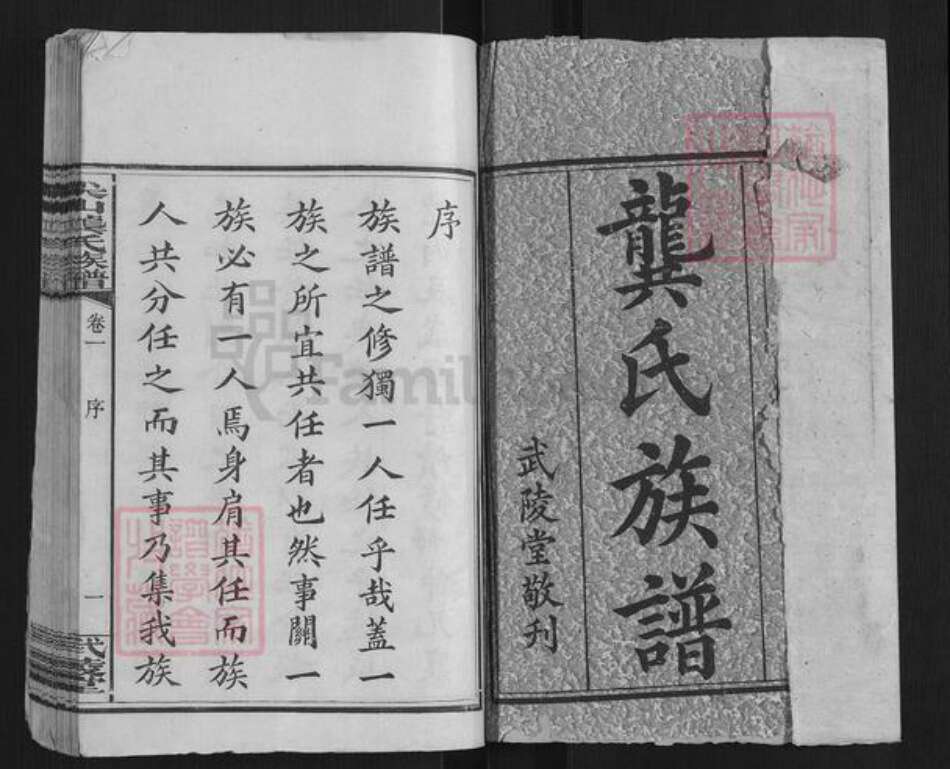 龔氏族譜
武陵堂敬刊
序
族譜之修獨一人任乎哉蓋一
族之所宜共任者也然事關一
族必有一人焉身肩其任而族
人共分任之而其事乃集我族
山龔氏族譜
卷一
序
一
武陵堂